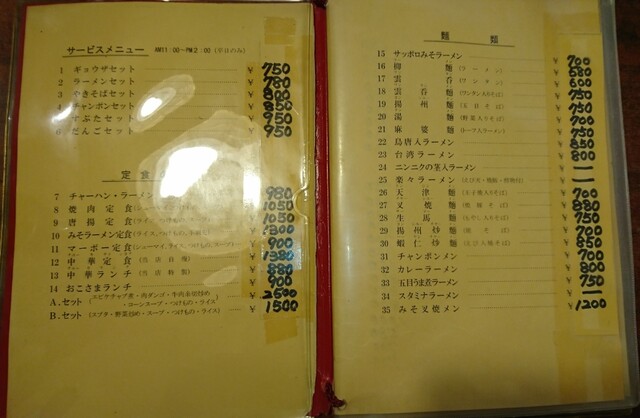 サービスメニュー AM11:00〜PM2:00 (平日のみ)
1 ギョウザセット ¥750
2 ラーメンセット ¥780
3 やきそばセット ¥800
4 チャンポンセット ¥850
5 すぶたセット ¥950
6 だんごセット ¥950
定食
7 チャーハン・ラーメン ¥980
8 焼肉定食 ¥1050
9 唐揚定食 ¥1050
10 みそラーメン定食 ¥1300
11 マーボー定食 ¥900
12 中華定食 ¥1380
13 中華ランチ ¥880
14 おこさまランチ ¥900
A.セット ¥2500
・コーンスープ・つけもの・ライス
B.セット (スブタ・野菜炒め・スープ・つけもの・ライス) ¥1500
麺類
15 サッポロみそラーメン ¥700
16 柳麺 (ラーメン) ¥580
17 雲呑 (ワンタン) ¥600
18 雲呑麺 (ワンタン入りそば) ¥750
19 揚州麺 (五目そば) ¥750
20 湯麺 (野菜入りそば) ¥700
21 麻婆麺 (トーフ入ラーメン) ¥750
22 鳥唐入ラーメン ¥850
23 台湾ラーメン ¥800
24 ニンニクの茎入ラーメン ¥ー
25 楽々ラーメン ¥ー
26 天津麺 ¥700
27 叉焼麺 ¥880
28 生馬麺 ¥750
29 揚州炒麺 ¥700
30 蝦仁炒麺 ¥850
31 チャンポンメン ¥700
32 カレーラーメン ¥800
33 五目うま煮ラーメン ¥750
34 スタミナラーメン ¥ー
35 みそ叉焼メン ¥1200